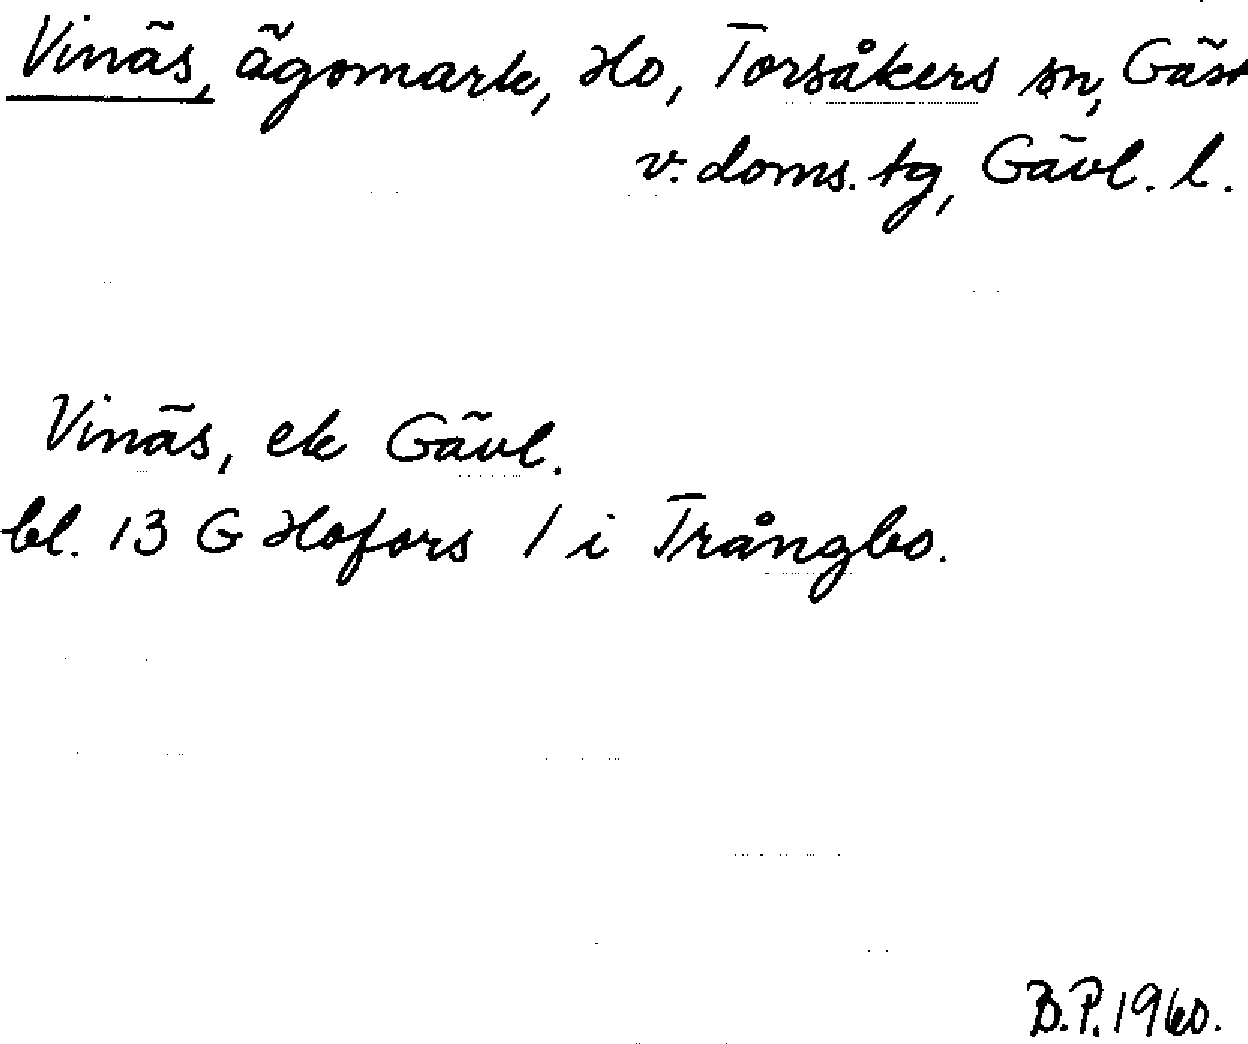 Vinäs, ägomark, Ho, Torsåkers sn, Gäst
v. doms. tg, Gävl. l.
Vinäs, ek Gävl.
bl. 13 G Hofors 1 i Trångbo.
B.P. 1960.